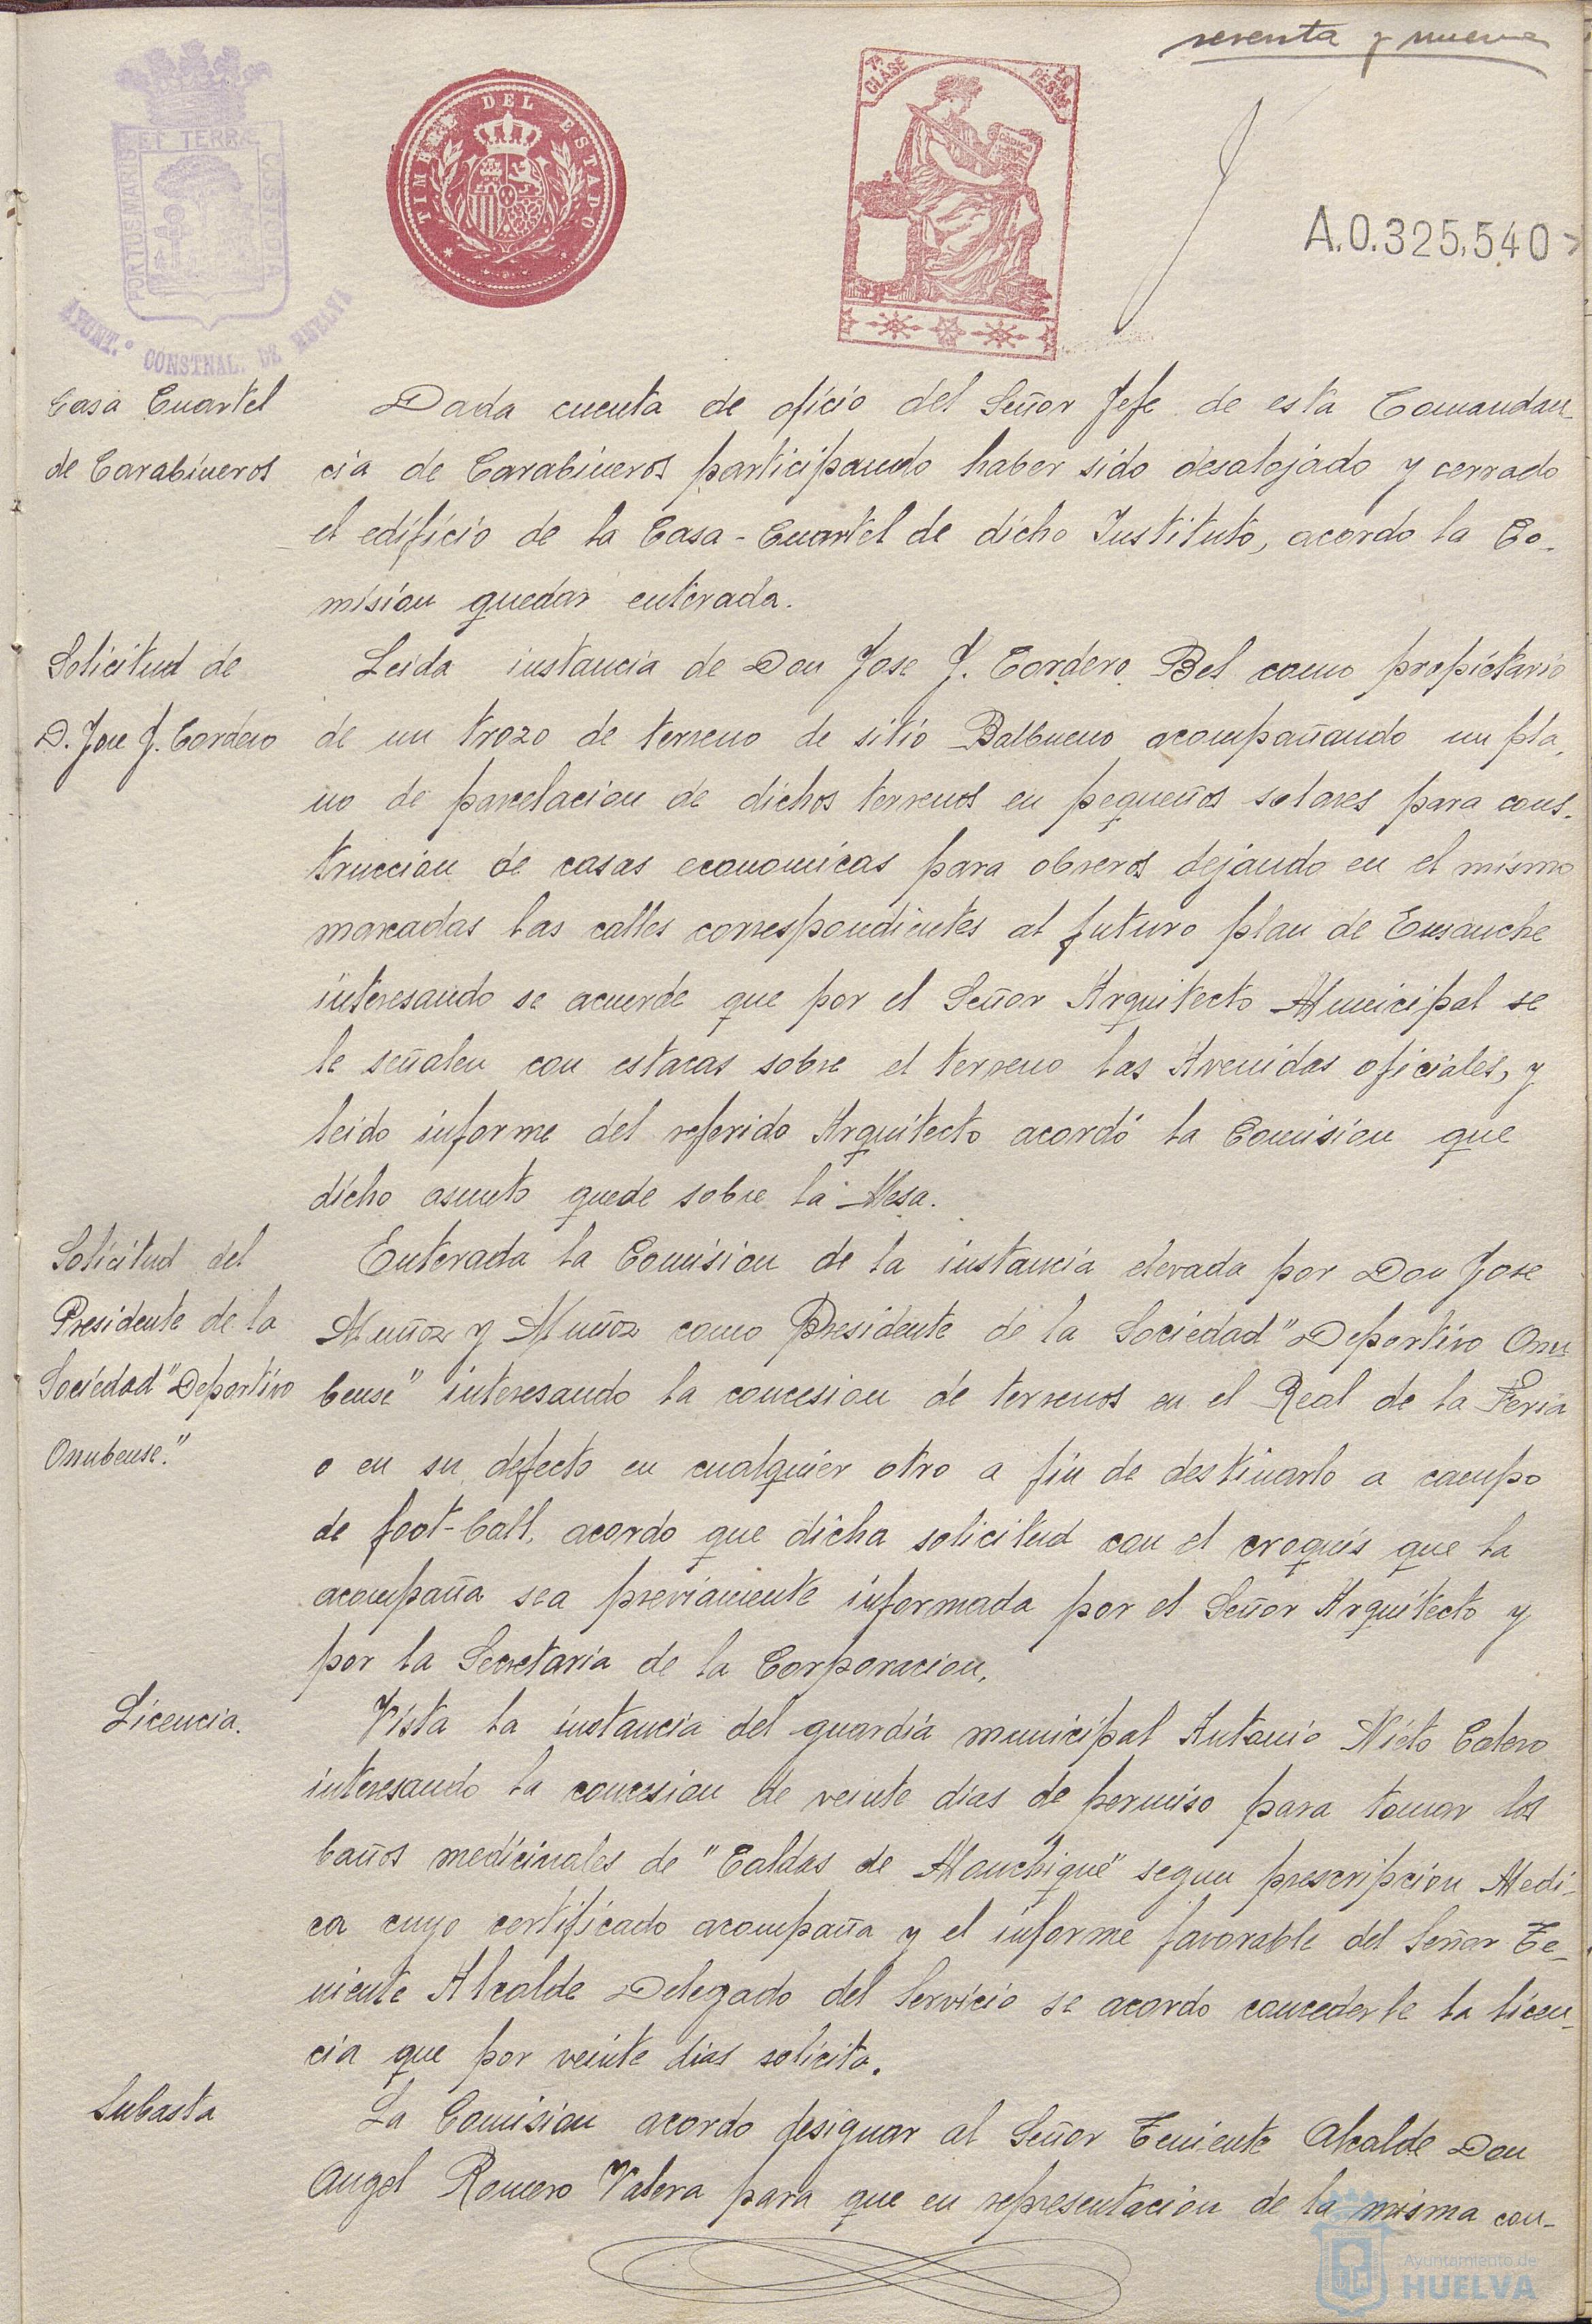 sesenta y nueve
ET TERRÆ
PORTUS MARIS
CUSTODIA
AYUNT.º CONSTNAL. DE
TIMBRE DEL ESTADO
7ª CLASE
10 PESTAS
A.0.325,540
Casa Cuartel
de Carabineros
Dada cuenta de oficio del Señor Jefe de esta Comandan-
cia de Carabineros participando haber sido desalojado y cerrado
el edificio de la Casa-Cuartel de dicho Instituto, acordo la Co-
mision quedar enterada.
Solicitud de
D. Jose J. Cordero
Leida instancia de Don Jose J. Cordero Bel como propietario
de un trozo de terreno de sitio Balbueno acompañando un pla-
no de parcelacion de dichos terrenos en pequeños solares para cons-
truccion de casas economicas para obreros dejando en el mismo
marcadas las calles correspondientes al futuro plan de Ensanche
interesando se acuerde que por el Señor Arquitecto Municipal se
le señalen con estacas sobre el terreno las Avenidas oficiales, y
leido informe del referido Arquitecto acordó la Comision que
dicho asunto quede sobre la Mesa.
Solicitud del
Presidente de la
Sociedad "Deportivo
Onubense."
Enterada la Comision de la instancia elevada por Don Jose
Muñoz y Muñoz como Presidente de la Sociedad "Deportivo Onu-
bense" interesando la concesion de terrenos en el Real de la Feria
o en su defecto en cualquier otro a fin de destinarlo a campo
de foot-ball, acordo que dicha solicitud con el croquis que la
acompaña sea previamente informada por el Señor Arquitecto y
por la Secretaria de la Corporacion.
Licencia.
Vista la instancia del guardia municipal Antonio Nieto Calero
interesando la concesion de veinte dias de permiso para tomar los
baños medicinales de "Caldas de Monchique" segun prescripcion Medi-
ca cuyo certificado acompaña y el informe favorable del Señor Te-
niente Alcalde Delegado del Servicio se acordo concederle la licen-
cia que por veinte dias solicita.
Subasta
La Comision acordo designar al Señor Teniente Alcalde Don
Angel Romero Valera para que en representacion de la misma con-
Ayuntamiento de
HUELVA